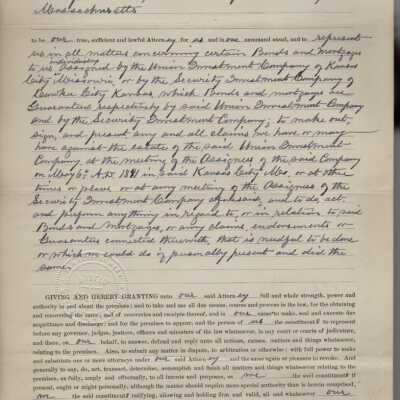 Massachusetts
to be our true, sufficient and lawful Attorney for us and in our names and stead, and to represent
us in all matters concerning certain Bonds and Mortgages
to us individually assigned by the Union Investment Company of Kansas
City Missouri or by the Security Investment Company of
Eureka City Kansas, which Bonds and mortgages are
Guaranteed respectively by said Union Investment Company
and by the Security Investment Company; to make out,
sign, and present any and all claims we have or may
have against the estate of the said Union Investment
Company at the meeting of the Assignee of the said Company
on May 6, A.D. 1891 in said Kansas City Mo. or at other
times or place or at any meeting of the Assignee of the
Security Investment Company aforesaid, and to do, act
and perform anything in regard to, or in relation to said
Bonds and Mortgages, or any claims, endorsements or
Guarantees connected therewith, that is needful to be done
or which we could do if personally present and did the
same.
GIVING AND HEREBY GRANTING unto our said Attorney full and whole strength, power and
authority in and about the premises; and to take and use all due means, course and process in the law, for the obtaining
and recovering the same; and of recoveries and receipts thereof, and in our name to make, seal and execute due
acquittance and discharge; and for the premises to appear, and the person of us the constituent to represent
before any governor, judges, justices, officers and ministers of the law whatsoever, in any court or courts of judicature,
and there, on our behalf, to answer, defend and reply unto all actions, causes, matters and things whatsoever,
relating to the premises. Also, to submit any matter in dispute, to arbitration or otherwise; with full power to make
and substitute one or more attorneys under our said Attorney and the same again at pleasure to revoke. And
generally to say, do, act, transact, determine, accomplish and finish all matters and things whatsoever relating to the
premises, as fully, amply and effectually, to all intents and purposes, as we the said constituent if
present, ought or might personally, although the matter should require more special authority than is herein comprised,
we the said constituent ratifying, allowing and holding firm and valid, all and whatsoever our